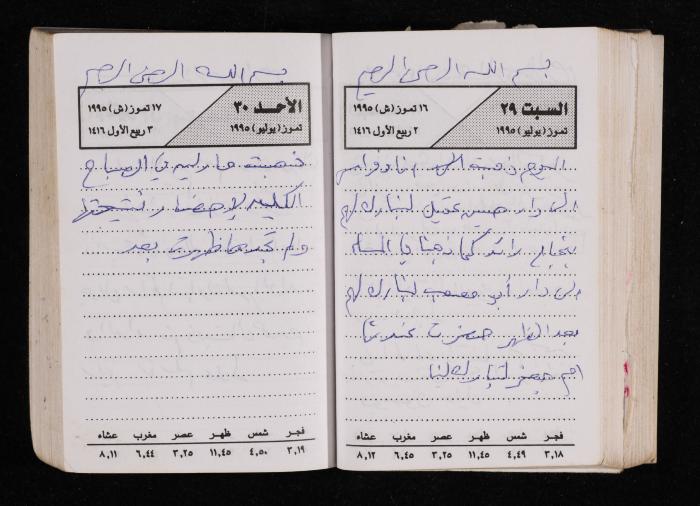 بسم الله الرحمن الرحيم
السبت ٢٩
تموز (يوليو) ١٩٩٥
١٦ تموز (ش) ١٩٩٥
٢ ربيع الأول ١٤١٦
اليوم ذهبت أنا وفراس
الى دار حسين عقيل لنبارك لهم
بنجاح رائد كما ذهبنا في المساء
الى دار أبو مصعب لنبارك لهم
بعد الظهر حضرت عندنا
ام جعفر لتبارك لنا
فجر شمس ظهر عصر مغرب عشاء
٣,١٨ ٤,٤٩ ١١,٤٥ ٣,٢٥ ٦,٤٥ ٨,١٢
بسم الله الرحمن الرحيم
الأحد ٣٠
تموز (يوليو) ١٩٩٥
١٧ تموز (ش) ١٩٩٥
٣ ربيع الأول ١٤١٦
ذهبت في الصباح
الكلية لإحضار نتيجتها
ولم تجدها ظهرت بعد
فجر شمس ظهر عصر مغرب عشاء
٣,١٩ ٤,٥٠ ١١,٤٥ ٣,٢٥ ٦,٤٤ ٨,١١